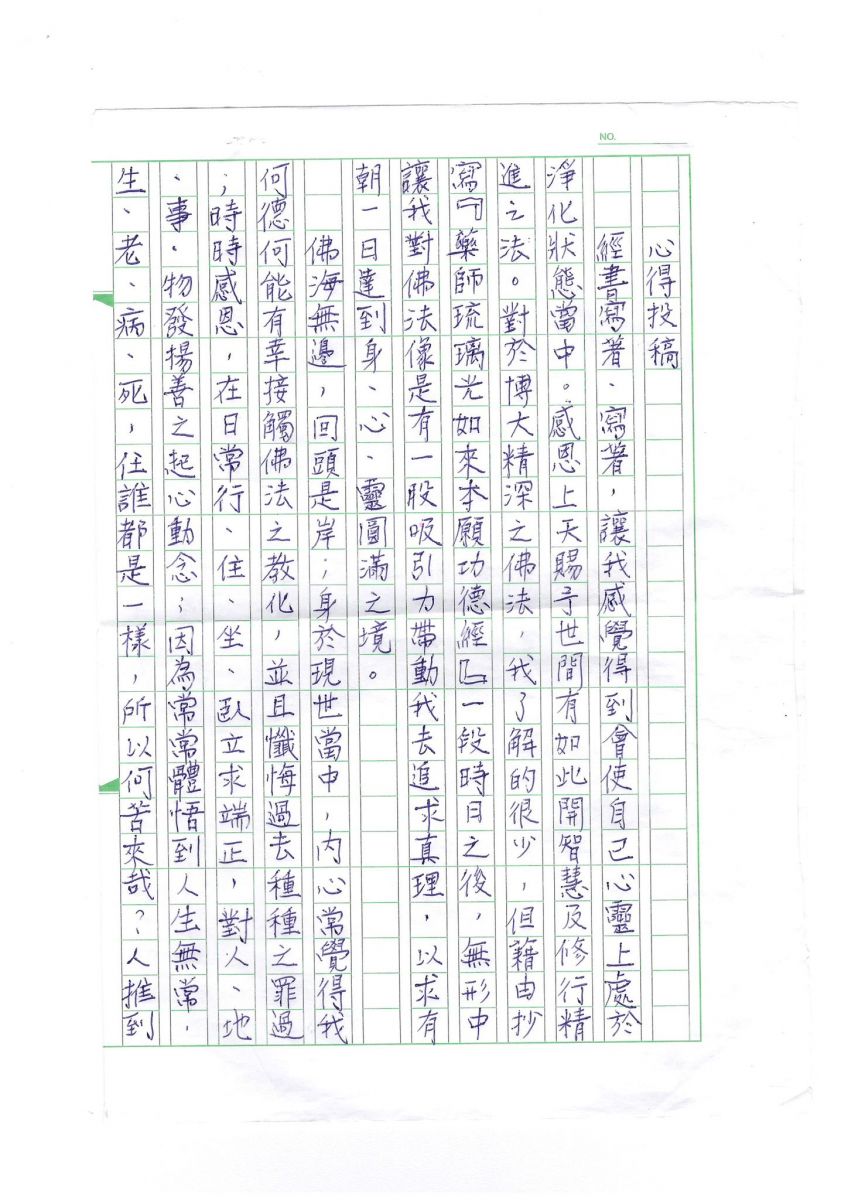 NO.
心得投稿
經書寫著、寫著，讓我感覺得到會使自己心靈上處於
淨化狀態當中。感恩上天賜予世間有如此開智慧及修行精
進之法。對於博大精深之佛法，我了解的很少，但藉由抄
寫『藥師琉璃光如來本願功德經』一段時日之後，無形中
讓我對佛法像是有一股吸引力帶動我去追求真理，以求有
朝一日達到身、心、靈圓滿之境。
佛海無邊，回頭是岸；身於現世當中，內心常覺得我
何德何能有幸接觸佛法之教化，並且懺悔過去種種之罪過
；時時感恩，在日常行、住、坐、臥立求端正，對人、地
、事、物發揚善之起心動念；因為常常體悟到人生無常，
生、老、病、死，任誰都是一樣，所以何苦來哉？人推到